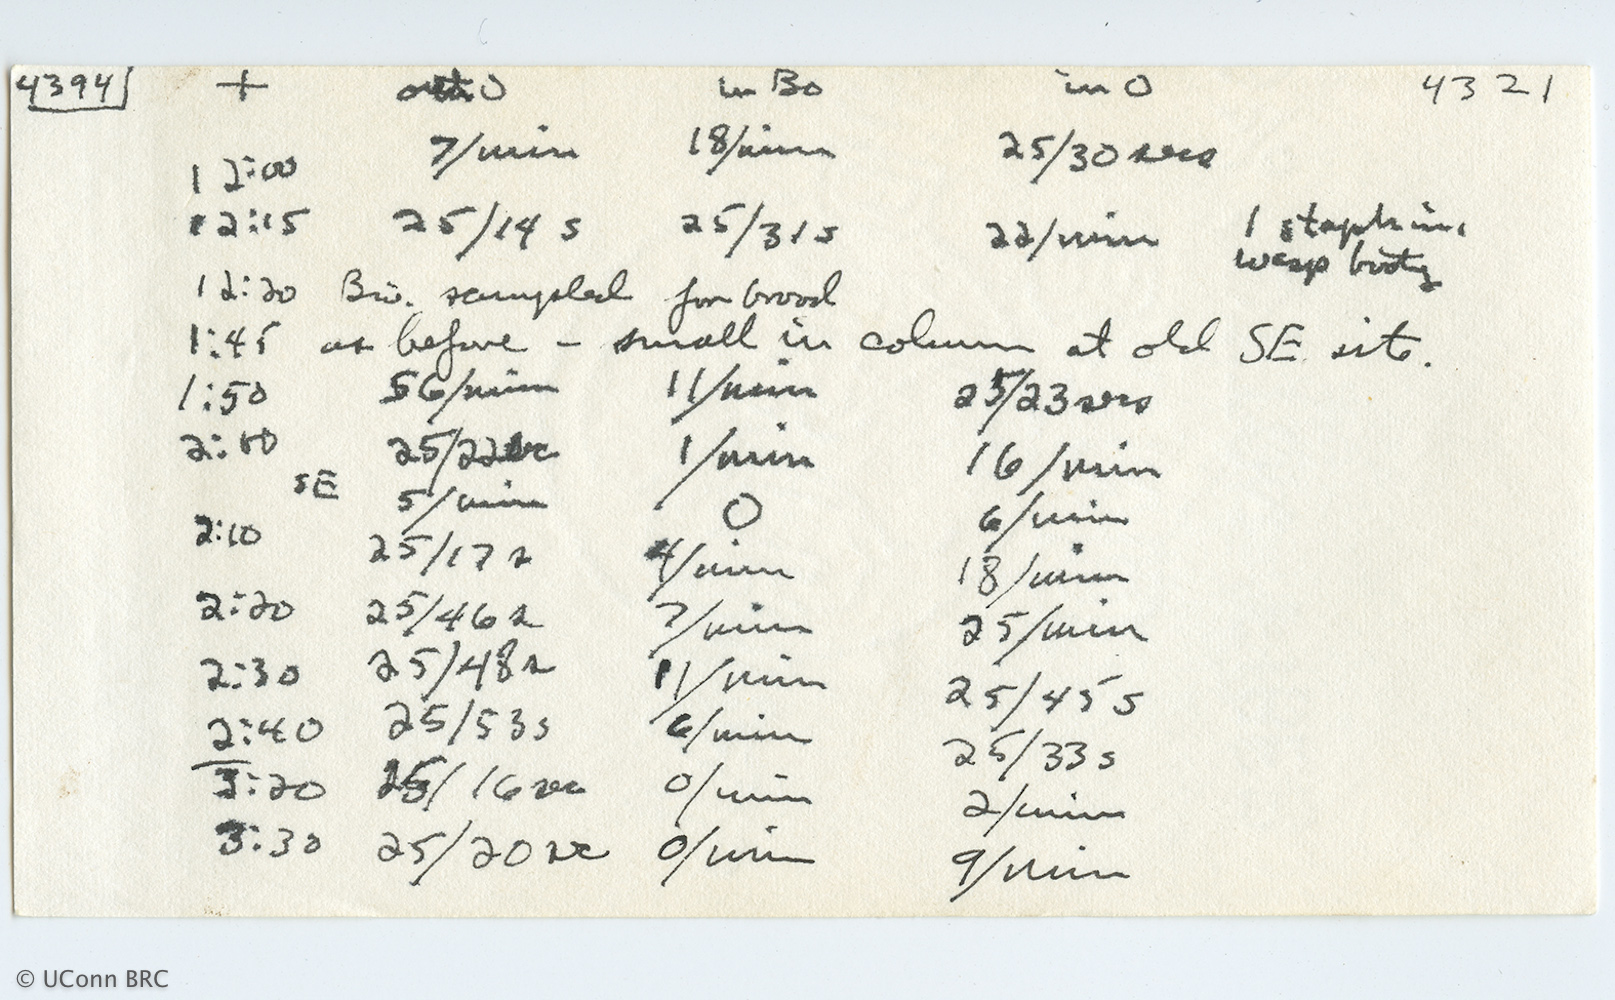 4394 + out O in Bo in O 4321
12:00 7/min 18/min 25/30 secs
12:15 25/14 s 25/31s 22/min 1 staph in,
wasp booty
12:20 Biv. sampled for brood
1:45 as before – small in column at old SE site.
1:50 56/min 11/min 25/23 secs
2:00 25/22 sec 1/min 16/min
SE 5/min 0 6/min
2:10 25/17 s 4/min 18/min
2:20 25/46 s 7/min 25/min
2:30 25/48 s 11/min 25/45 s
2:40 25/53 s 6/min 25/33 s
3:20 25/16 sec 0/min 2/min
3:30 25/20 sec 0/min 9/min
© UConn BRC